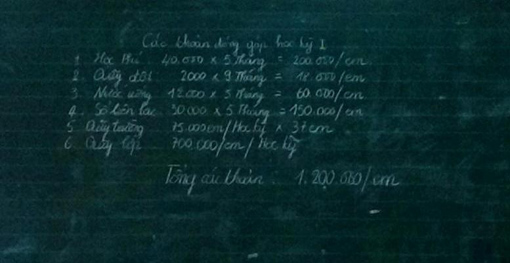 Các khoản đóng góp học kỳ I
1. Học Phí 40.000 x 5 Tháng = 200.000/em
2. Quỹ đội: 2000 x 9 Tháng = 18.000/em
3. Nước uống 12.000 x 5 Tháng = 60.000/em
4. Sổ liên lạc 30.000 x 5 Tháng = 150.000/em
5. Quỹ trường 75.000em/Học kỳ x 37em
6. Quỹ lớp 700.000/em/Học kỳ
Tổng các khoản: 1.200.000/em